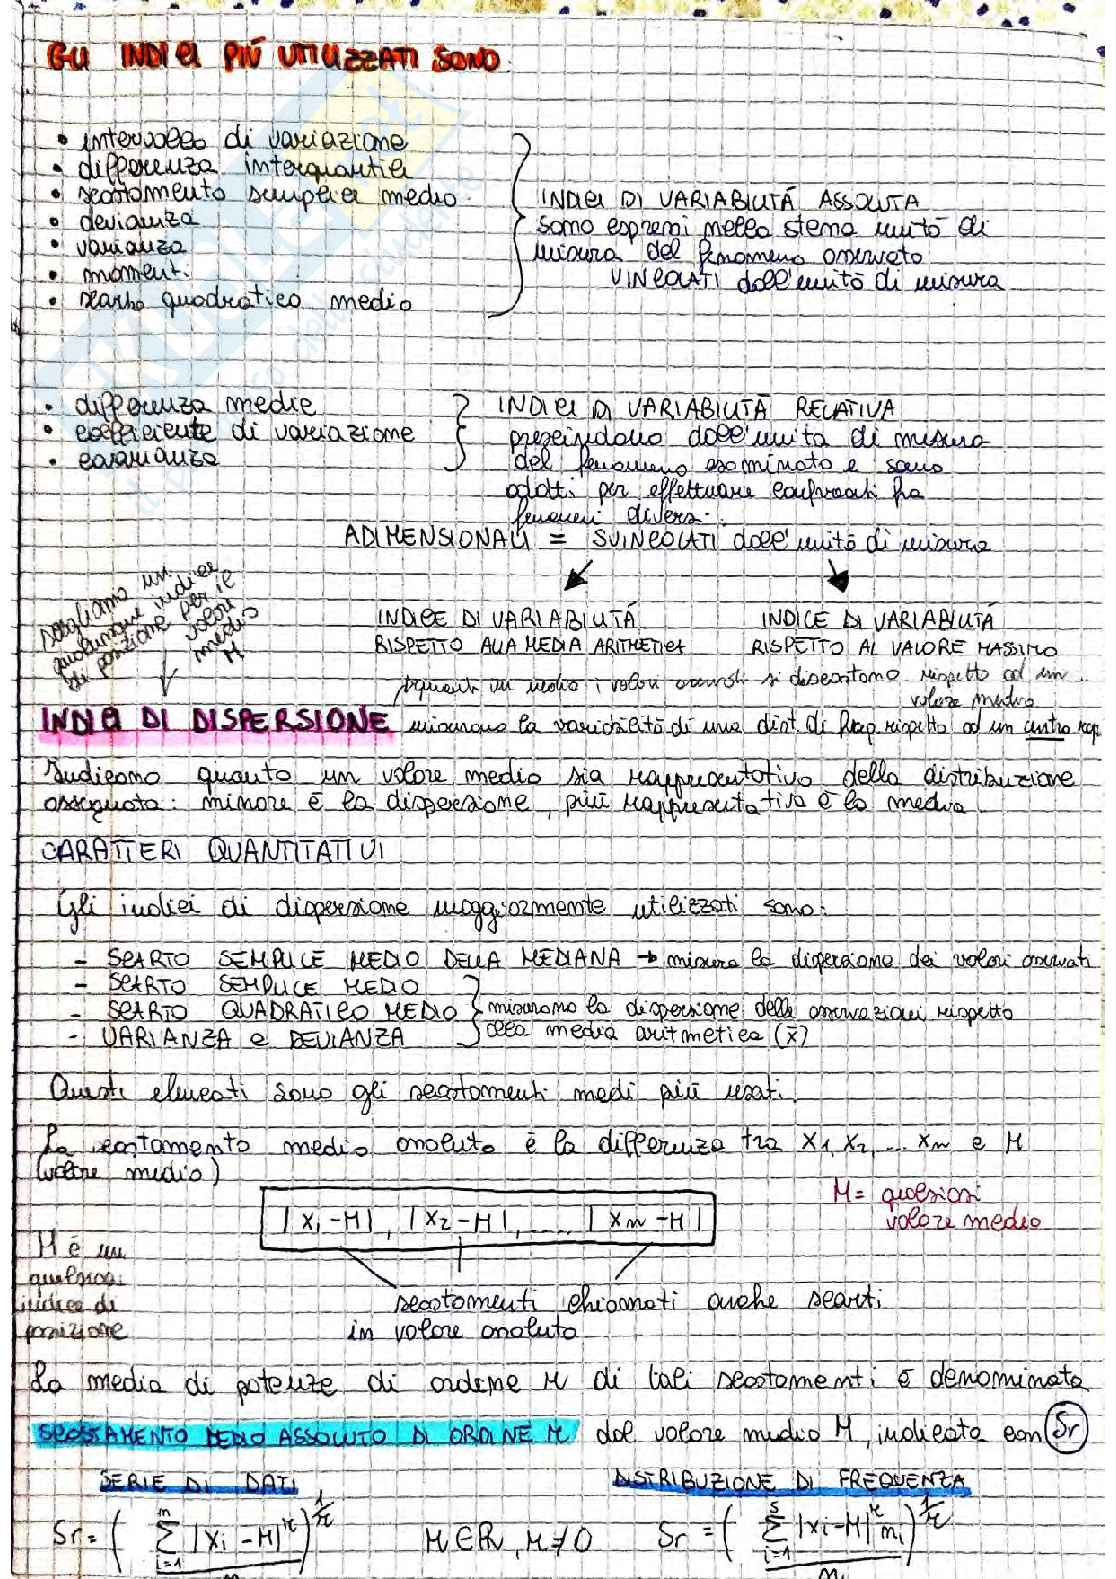 GLI INDICI PIÙ UTILIZZATI SONO
• intervallo di variazione
• differenza interquartile
• scostamento semplice medio
• devianza
• varianza
• momenti
• scarto quadratico medio
INDICI DI VARIABILITÁ ASSOLUTA
sono espressi nella stessa unitá di
misura del fenomeno osservato
VINCOLATI dall'unitá di misura
• differenza medie
• coefficiente di variazione
• covarianza
INDICI DI VARIABILITÁ RELATIVA
prescindono dall'unita di misura
del fenomeno esaminato e sono
adatti per effettuare confronti fra
fenomeni diversi.
ADIMENSIONALI = SVINCOLATI dall'unitá di misura
INDICE DI VARIABILITÁ
RISPETTO ALLA MEDIA ARITMETICA
INDICE DI VARIABILITÁ
RISPETTO AL VALORE MASSIMO
scegliamo un
qualunque indice
di posizione per il
valore
medio
M
quanto in media i valori osservati si discostano rispetto ad un
valore medio
INDICI DI DISPERSIONE misurano la variabilitá di una dist. di freq. rispetto ad un centro
Indicano quanto un valore medio sia rappresentativo della distribuzione
assegnata: minore é la dispersione, piú rappresentativa é la media
CARATTERI QUANTITATIVI
Gli indici di dispersione maggiormente utilizzati sono:
- SCARTO SEMPLICE MEDIO DELLA MEDIANA → misura la dispersione dei valori osservati
- SCARTO SEMPLICE MEDIO
- SCARTO QUADRATICO MEDIO
- VARIANZA e DEVIANZA
misurano la dispersione delle osservazioni rispetto
alla media aritmetica (x̄)
Questi elencati sono gli scostamenti medi piú usati.
Lo scostamento medio assoluto é la differenza tra x₁, x₂, ... xₙ e M
(valore medio)
|x₁-M|, |x₂-M|, ..... |xₙ-M|
M = qualsiasi
valore medio
M é un
qualsiasi
indice di
posizione
scostamenti chiamati anche scarti
in valore assoluto
La media di potenze di ordine r di tali scostamenti é denominata
SCOSTAMENTO MEDIO ASSOLUTO DI ORDINE r dal valore medio M, indicata con Sr
SERIE DI DATI
DISTRIBUZIONE DI FREQUENZA
Sr = ( Σ |xᵢ-M|ʳ / n )^(1/r) r∈R, r≠0 Sr = ( Σ |xᵢ-M|ʳ nᵢ / n )^(1/r)